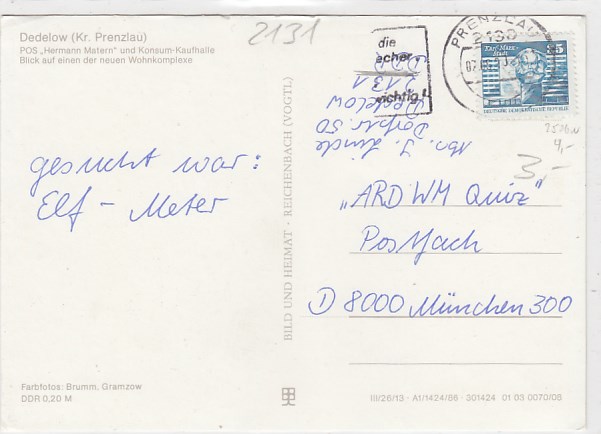 Dedelow (Kr. Prenzlau)
POS „Hermann Matern" und Konsum-Kaufhalle
Blick auf einen der neuen Wohnkomplexe
2131
die
wichtig!
PRENZLAU
2130
Karl-Marx-
Stadt
35
DEUTSCHE DEMOKRATISCHE REPUBLIK
Abs. J. Linde
Dorfstr. 50
Dedelow
2131
DDR
4,-
3,-
gesucht war:
Elf - Meter
„ARD WM Quiz"
Postfach
D 8000 München 300
BILD UND HEIMAT · REICHENBACH (VOGTL)
Farbfotos: Brumm, Gramzow
DDR 0,20 M
III/26/13 · A1/1424/88 · 301424 01 03 0070/08